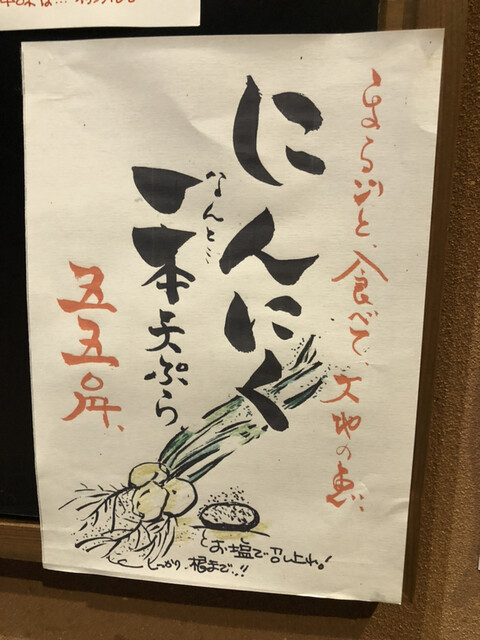 まるごと、食べて、大地の恵、
にんにく
なんと…
一本天ぷら
五五〇円、
とお塩で召し上れ!
しっかり、根まで..!!